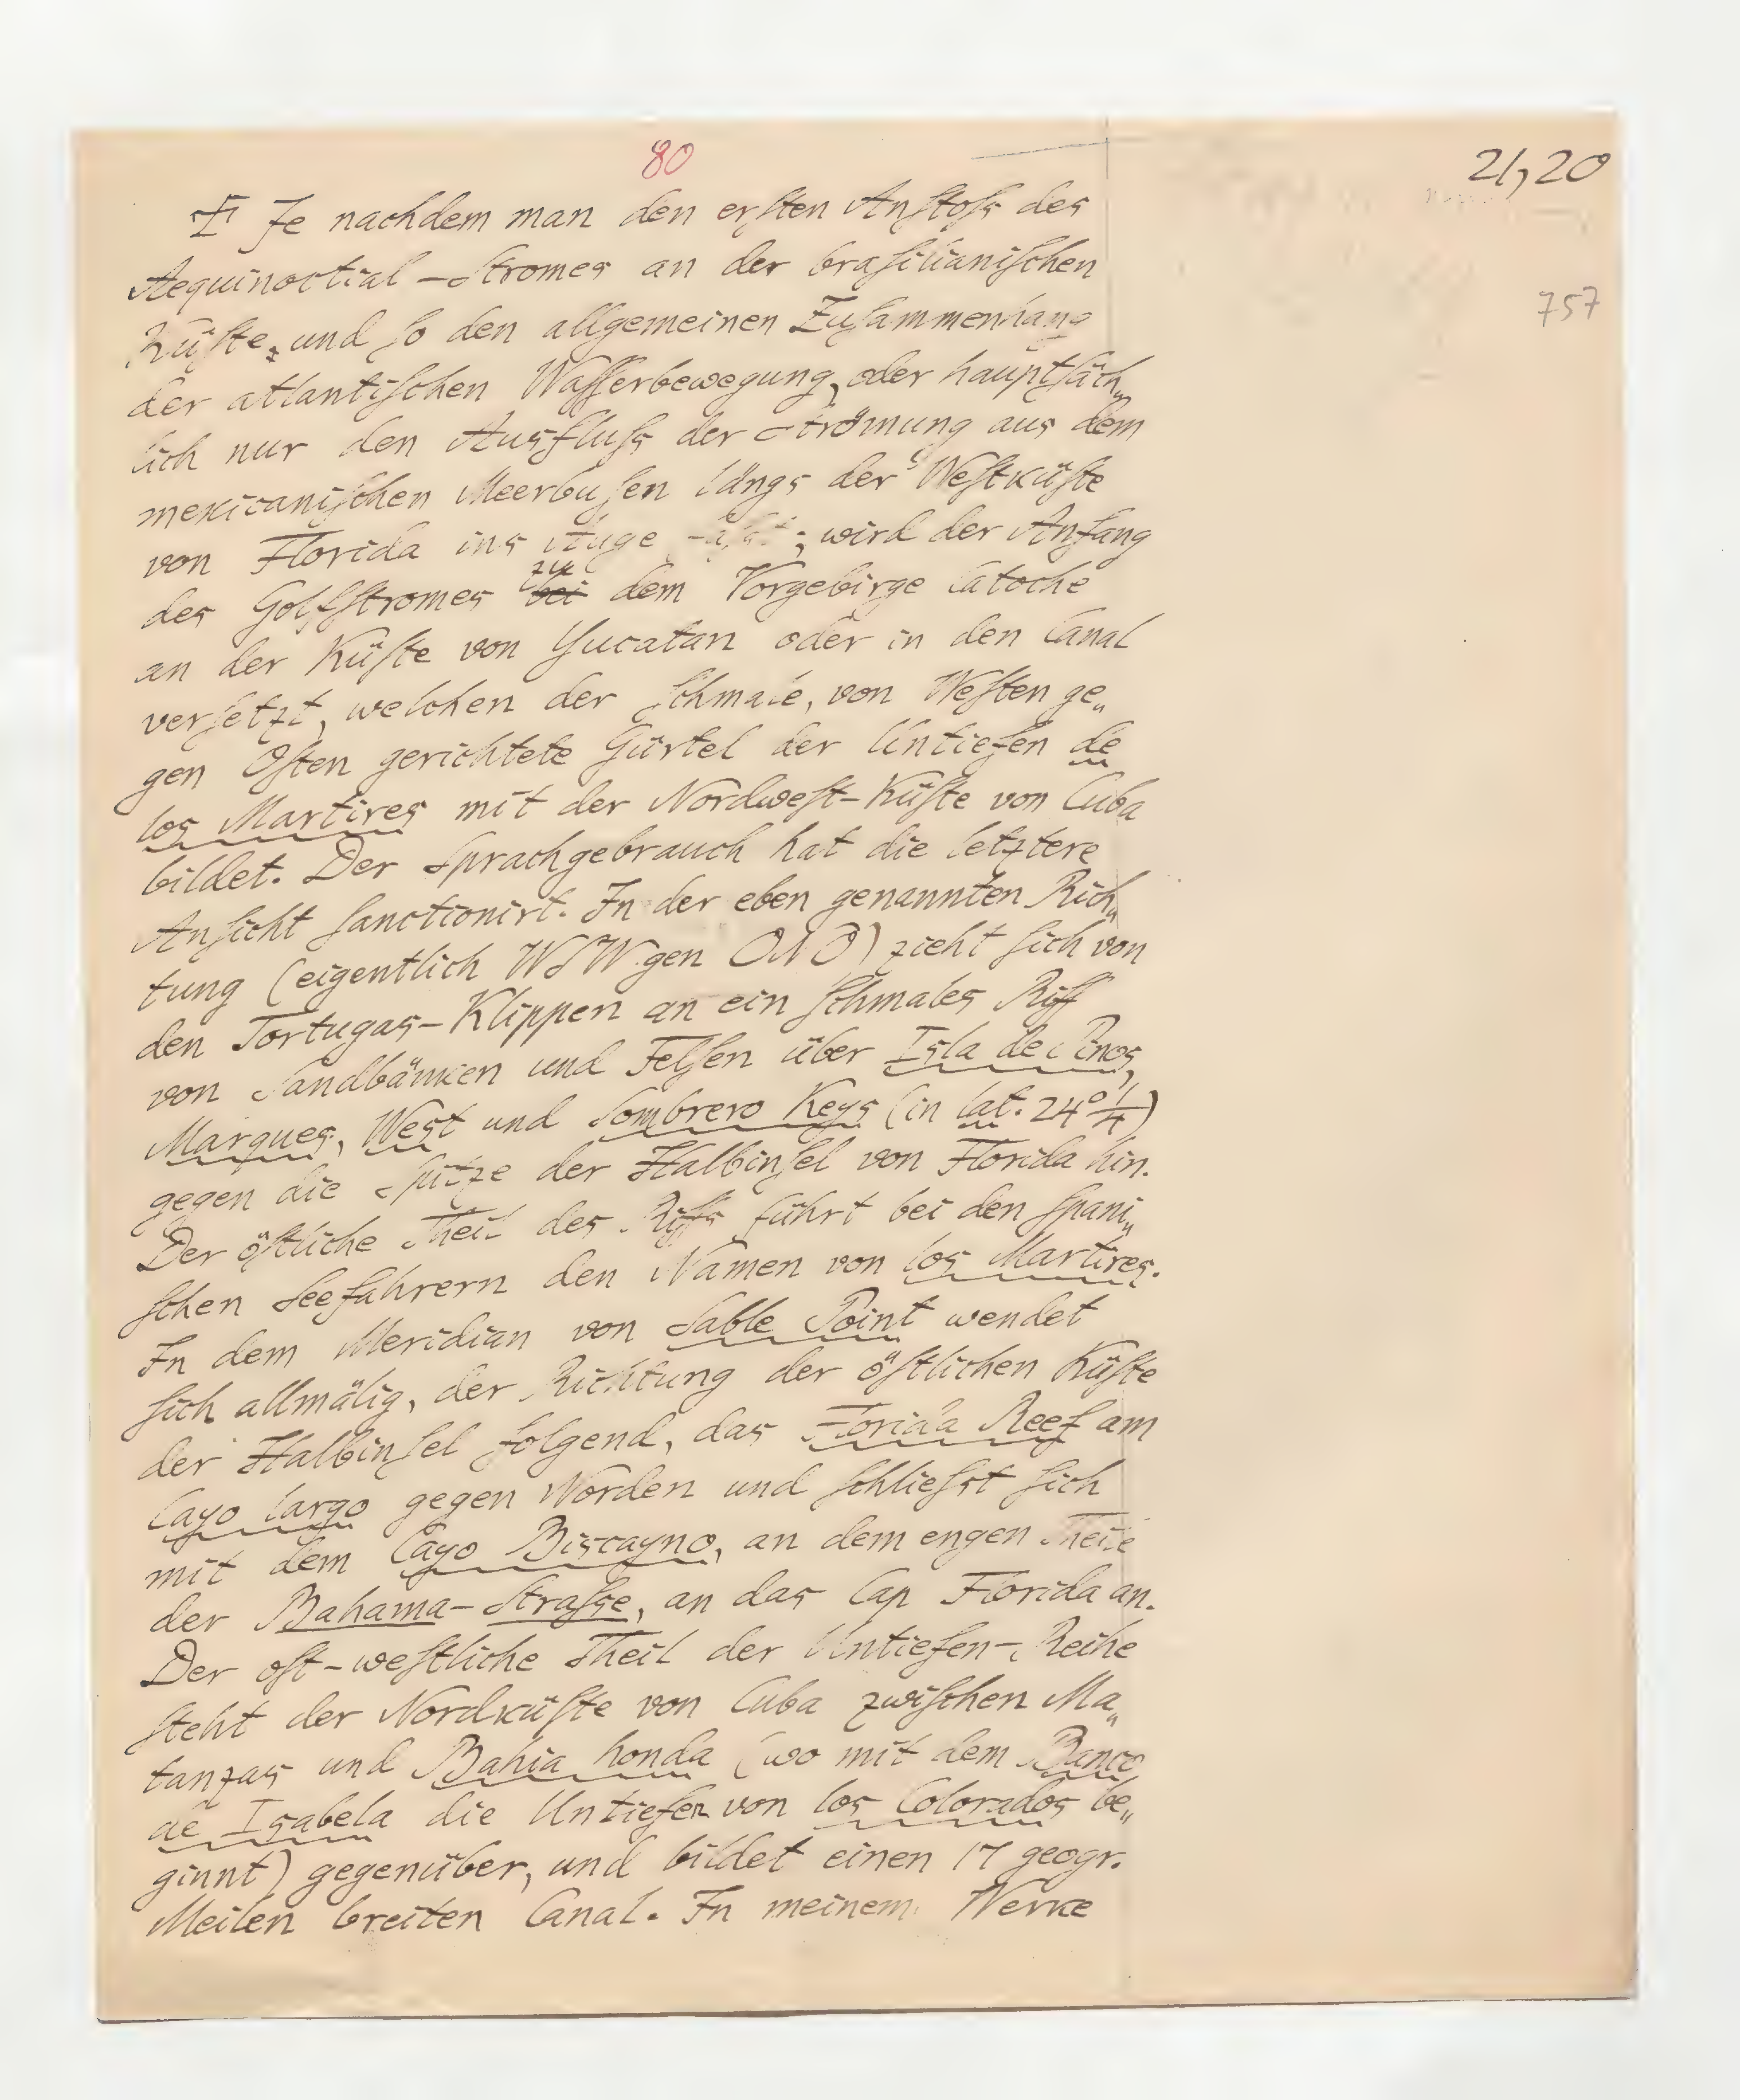 80
21,20
757
Ŧ Je nachdem man den erſten Anſtoſs des
Aequinoctial-Stromes an der braſilianiſchen
Küſte, und ſo den allgemeinen Zuſammenhang
der atlantiſchen Waſſerbewegung, oder hauptſäch„
lich nur den Ausfluſs der Strömung aus dem
mexicaniſchen Meerbuſen längs der Weſtküſte
von Florida ins Auge faſst; wird der Anfang
des Golfſtromes ~~bei~~ zu dem Vorgebirge Catoche
an der Küſte von Yucatan oder in den Canal
verſetzt, welchen der ſchmale, von Weſten ge„
gen Oſten gerichtete Gürtel der Untiefen de
los Martires mit der Nordweſt-Küſte von Cuba
bildet. Der Sprachgebrauch hat die letztere
Anſicht ſanctionirt. In der eben genannten Rich„
tung (eigentlich WSW gen ONO) zieht ſich von
den Tortugas-Klippen an ein ſchmales Riff
von Sandbänken und Felſen über Isla de Pinos,
Marques, West und Sombrero Keys (in lat. 24°¼)
gegen die Spitze der Halbinſel von Florida hin.
Der öſtliche Theil des Riffs führt bei den ſpani„
ſchen Seefahrern den Namen von los Martires.
In dem Meridian von Sable Point wendet
ſich allmälig, der Richtung der öſtlichen Küſte
der Halbinſel folgend, das Florida Reef am
Cayo largo gegen Norden und ſchlieſst ſich
mit dem Cayo Biscayno, an dem engen Theile
der Bahama-Straſse, an das Cap Florida an.
Der oſt-weſtliche Theil der Untiefen-Reihe
ſteht der Nordküſte von Cuba zwiſchen Ma„
tanzas und Bahia honda (wo mit dem Banco
de Isabela die Untiefen von los Colorados be„
ginnt) gegenüber, und bildet einen 17 geogr.
Meilen breiten Canal. In meinem Werke